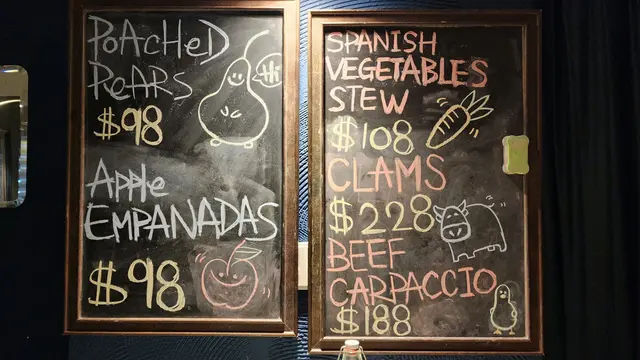 POACHED
Hi
PEARS
$98
Apple
EMPANADAS
$98
SPANISH
VEGETABLES
STEW
$108
CLAMS
$228
BEEF
CARPACCIO
$188